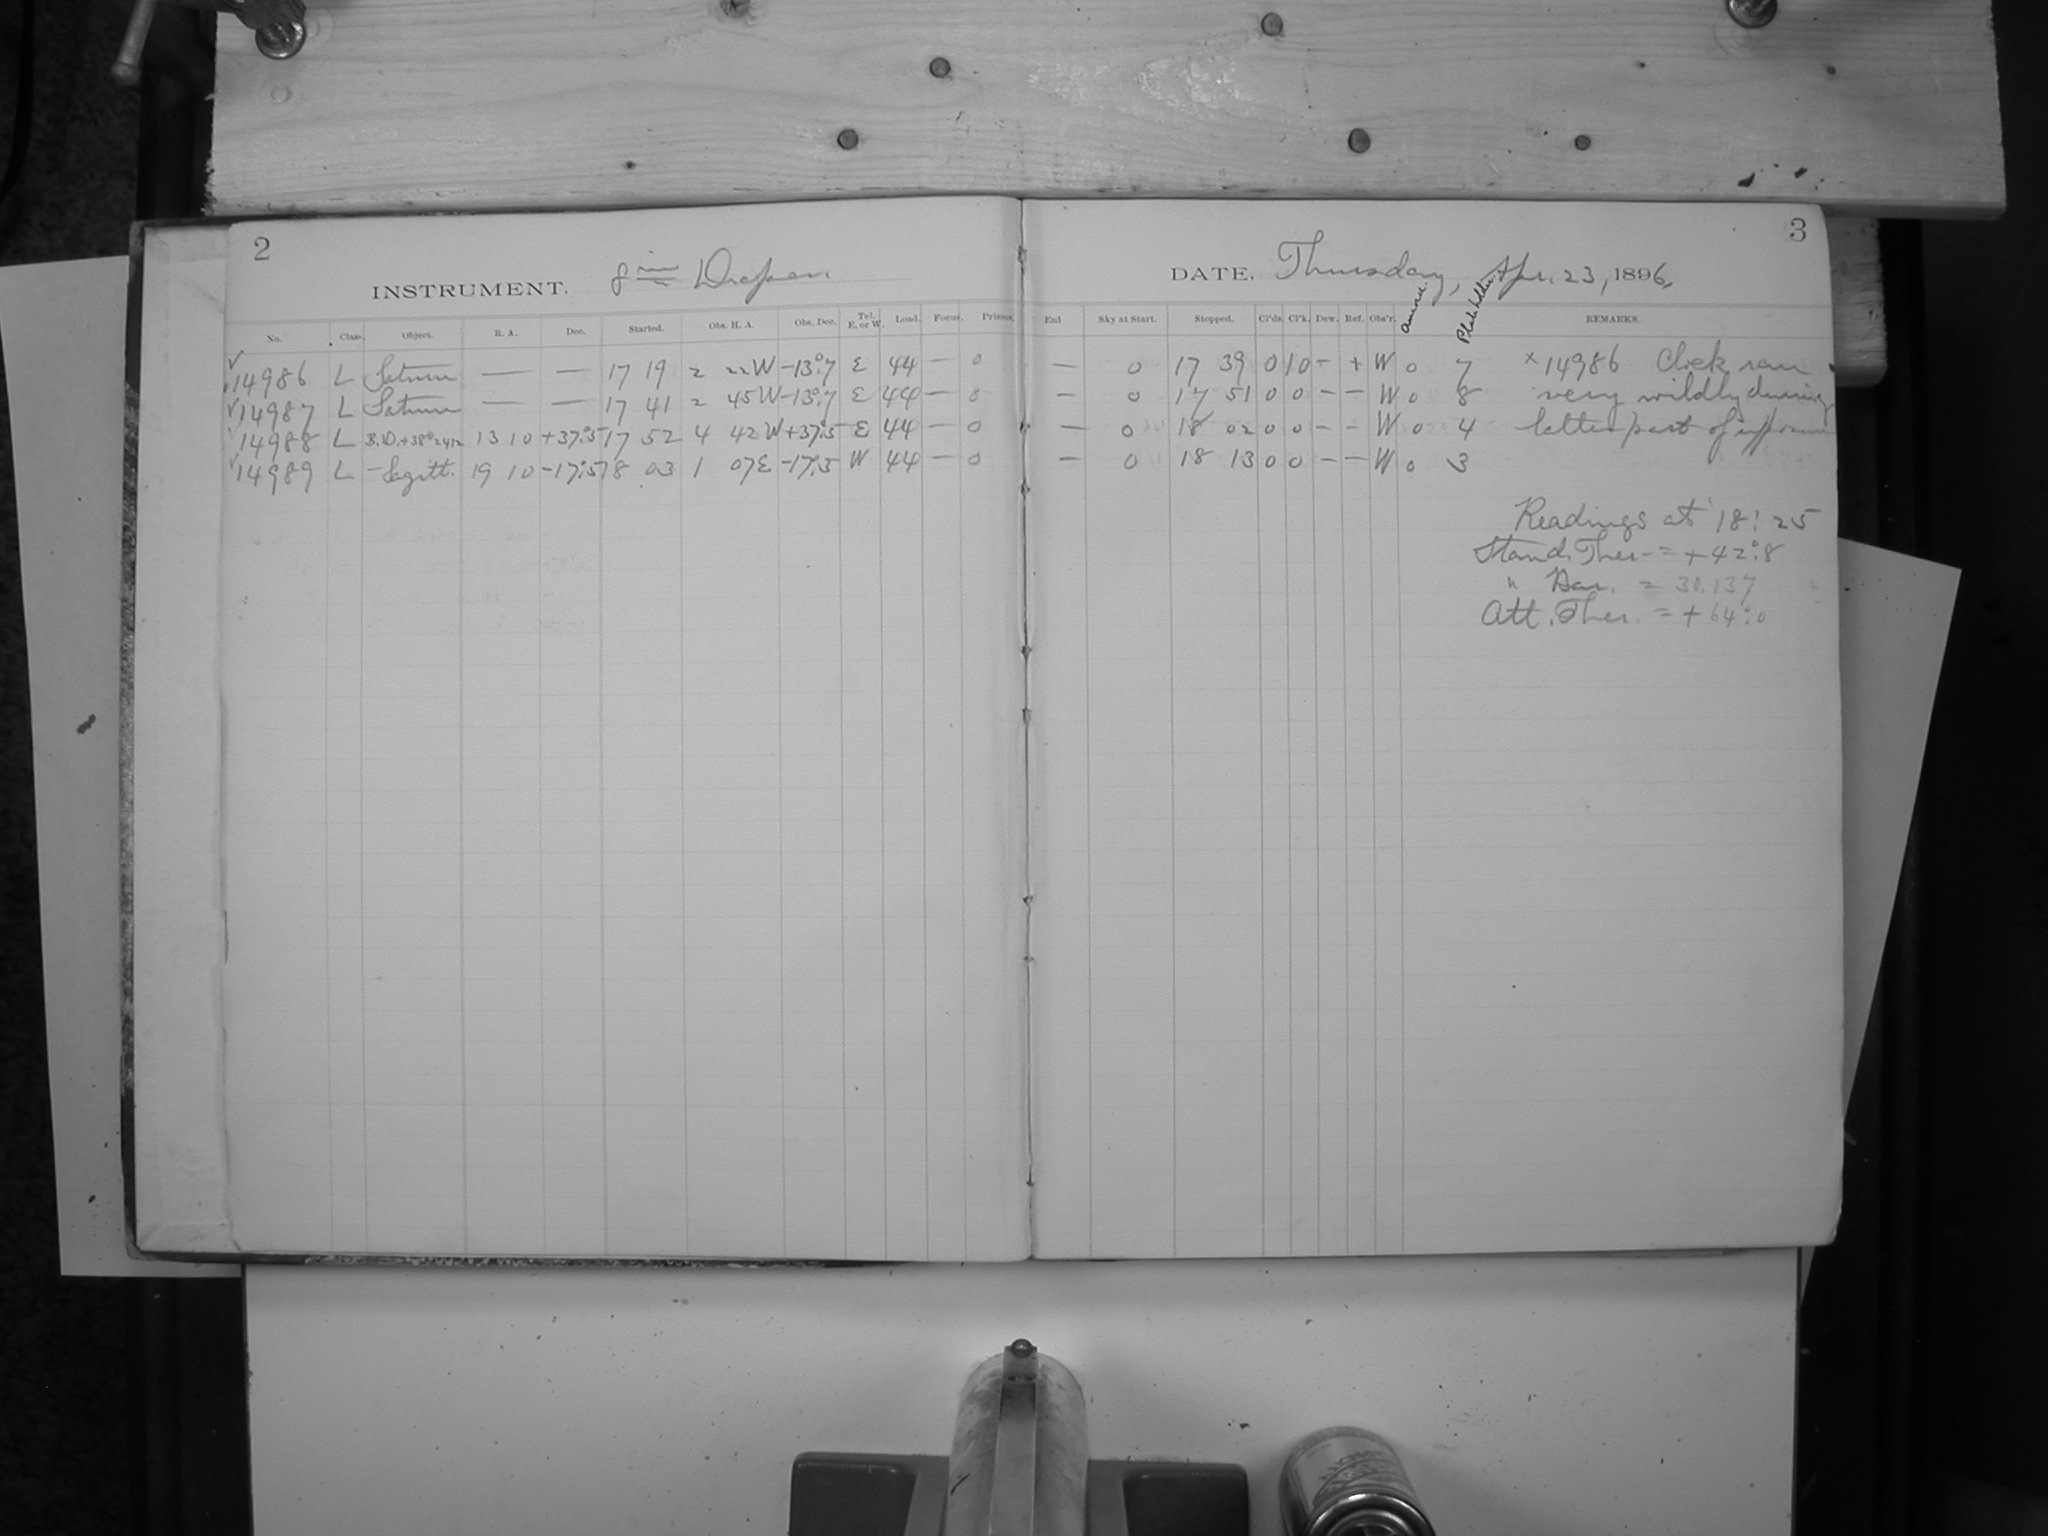 2
INSTRUMENT. 8 in Draper
No. Class. Object. R. A. Dec. Started. Obs. H. A. Obs. Dec. Tel. E. or W. Load. Focus. Prisms.
✓14986 L Saturn — — 17 19 2 22W -13°.7 E 44 — 0
✓14987 L Saturn — — 17 41 2 45W -13°.7 E 44 — 0
✓14988 L B.D.+38°2412 13 10 +37°.5 17 52 4 42W +37°.5 E 44 — 0
✓14989 L - Sagitt. 19 10 -17°.5 18 03 1 07E -17°.5 W 44 — 0
3
DATE, Thursday, Apr. 23, 1896.
Sky at Start. Stopped. Cl'ds. Cl'k. Dew. Ref. Obs'r. REMARKS.
— 0 17 39 0 10 - + W 0 7 × 14986 Clock ran
— 0 17 51 0 0 - - W 0 8 very wildly during
— 0 18 02 0 0 - - W 0 4 latter part of
— 0 18 13 0 0 - - W 0 3
Readings at 18:25
Stand. Ther. = +42°.8
" Bar. = 30.137
Att. Ther. = +64°.0